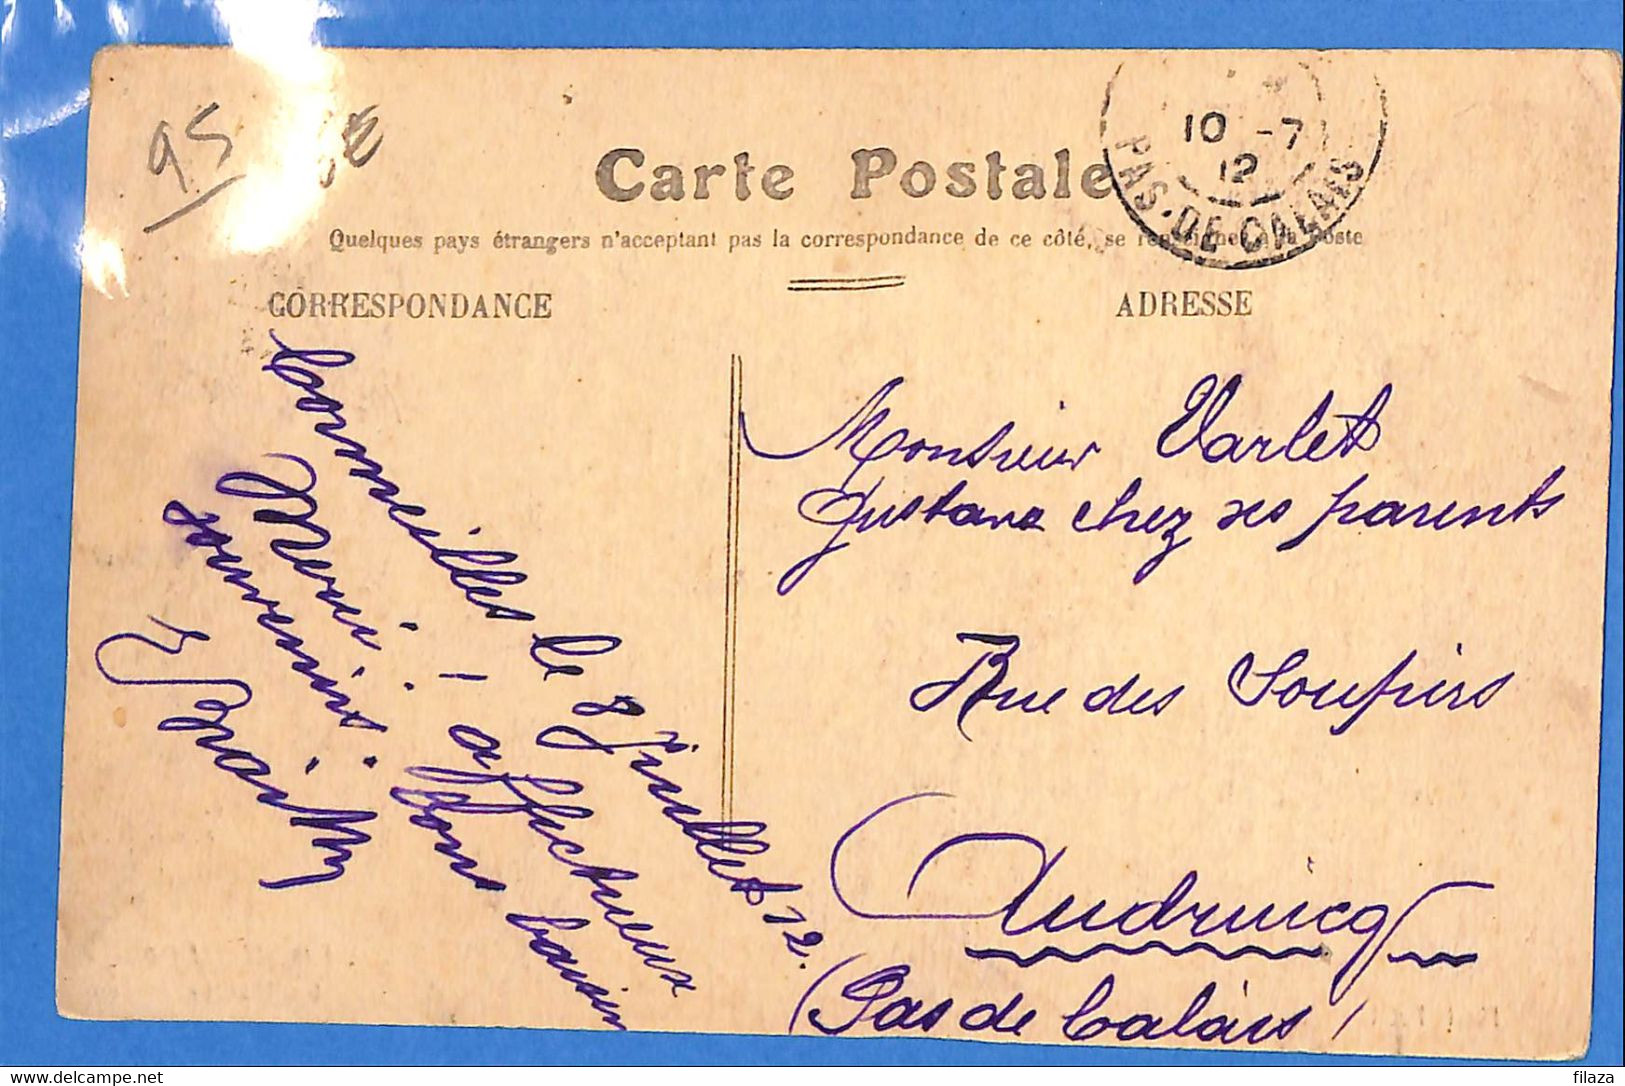 95
Carte Postale
10 -7
12
PAS-DE-CALAIS
Quelques pays étrangers n'acceptant pas la correspondance de ce côté, se renseigner à la Poste
CORRESPONDANCE
ADRESSE
Cormeilles le 9 Juillet 12.
Merci! - affectueux
souvenirs. bons baisers
Monsieur Varlet
Gustave chez ses parents
Rue des Soupirs
Audruicq
(Pas de Calais)
www.delcampe.net
filaza